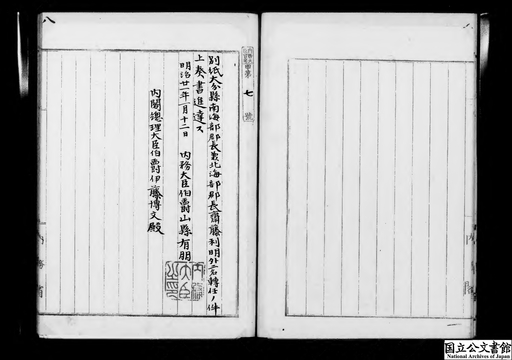 別紙大分縣南海部郡長兼北海部郡長齋藤利明外一名轉任ノ件
上奏書進達ス
明治廿一年一月十二日 内務大臣伯爵山縣有朋
内閣總理大臣伯爵伊藤博文殿
七 號
八
国立公文書館
National Archives of Japan